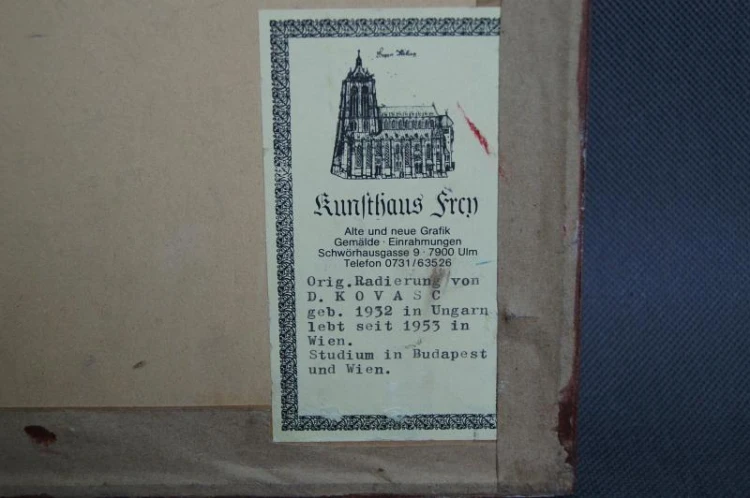 Kunsthaus Frey
Alte und neue Grafik
Gemälde · Einrahmungen
Schwörhausgasse 9 · 7900 Ulm
Telefon 0731/63526
Orig.Radierung von
D. K O V A S C
geb. 1932 in Ungarn
lebt seit 1953 in
Wien.
Studium in Budapest
und Wien.